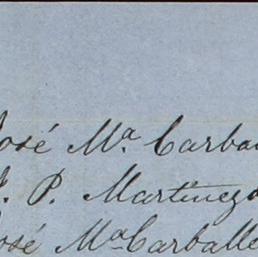 José Mª. Carba
J. P. Martinez
José Mª Carballe